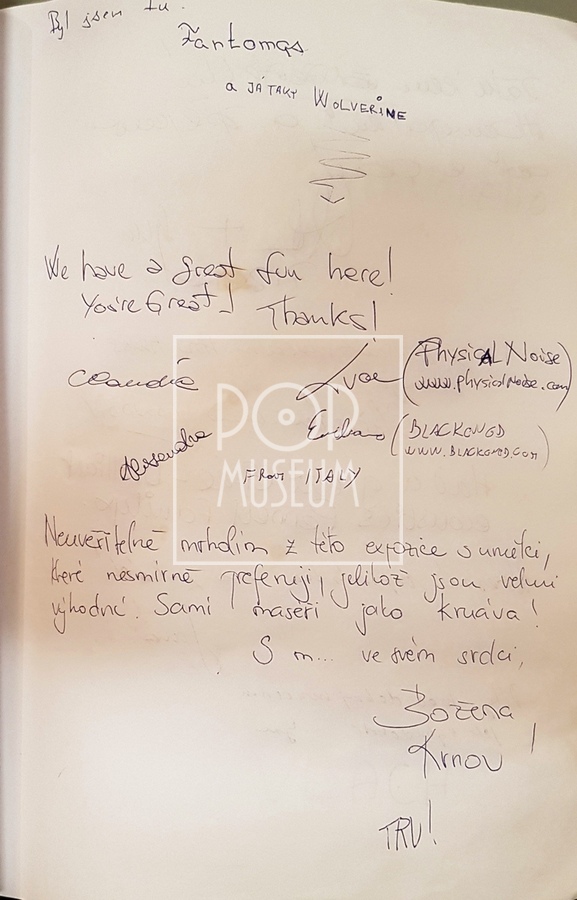 Byl jsem tu.
Fantomas
a JÁ TAKY WOLVERINE
We have a great fun here!
You're Great! Thanks!
Claudia
Luca (PhysicAL Noise
www.physicalnoise.com)
Alessandra
Emiliano (BLACKONGD
FROM ITALY
POP
MUSEUM
Neuvěřitelně mrholím z této expozice s umělci,
které nesmírně preferuji, jelikož jsou velmi
výhodní. Sami maséři jako kruáva!
S m... ve svém srdci,
Božena
Krnov!
TRU!